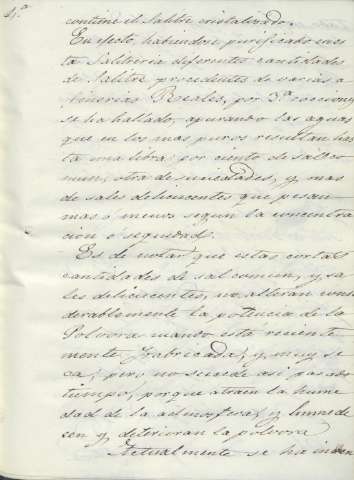 4,,ª
contiene el Salitre cristalizado.
En efecto, habiendose purificado en es
ta Salitreria diferentes cantidades
de Salitre procedentes de varias a
finerias Reales, por 3ª coccion y
se ha hallado, apurando las aguas
que en los mas puros resultan has
ta una libra por ciento de sal co
mun, otra de suciedades, y mas
de sales delicuecentes que pesan
mas ó menos segun la concentra
cion ó sequedad.
Es de notar que estas cortas
cantidades de sal comun, y sa
les delicuecentes, no alteran consi
derablemente la potencia de la
Polvora cuando está reciente
mente fabricada, y muy se
ca; pero no sucede asi pasado
tiempo, porque atraen la hume
dad de la admosfera, y humede
cen y deterioran la polvora
Actualmente se ha